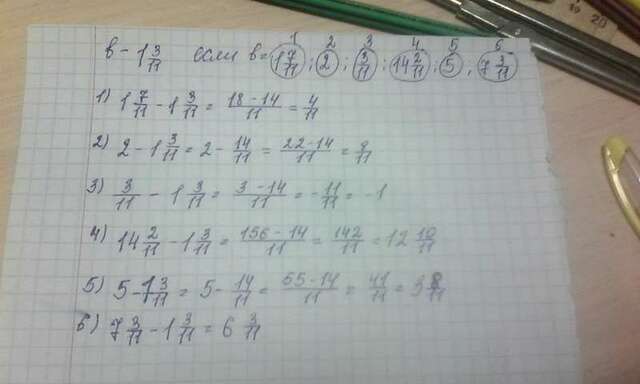 1 2 3 4 5 6
в - 1 3/11 если в = 1 7/11 ; 2 ; 3/11 ; 14 2/11 ; 5 ; 7 3/11
1) 1 7/11 - 1 3/11 = 18-14/11 = 4/11
2) 2 - 1 3/11 = 2 - 14/11 = 22-14/11 = 8/11
3) 3/11 - 1 3/11 = 3-14/11 = -11/11 = -1
4) 14 2/11 - 1 3/11 = 156-14/11 = 142/11 = 12 10/11
5) 5 - 1 3/11 = 5 - 14/11 = 55-14/11 = 41/11 = 3 8/11
6) 7 3/11 - 1 3/11 = 6 3/11
20